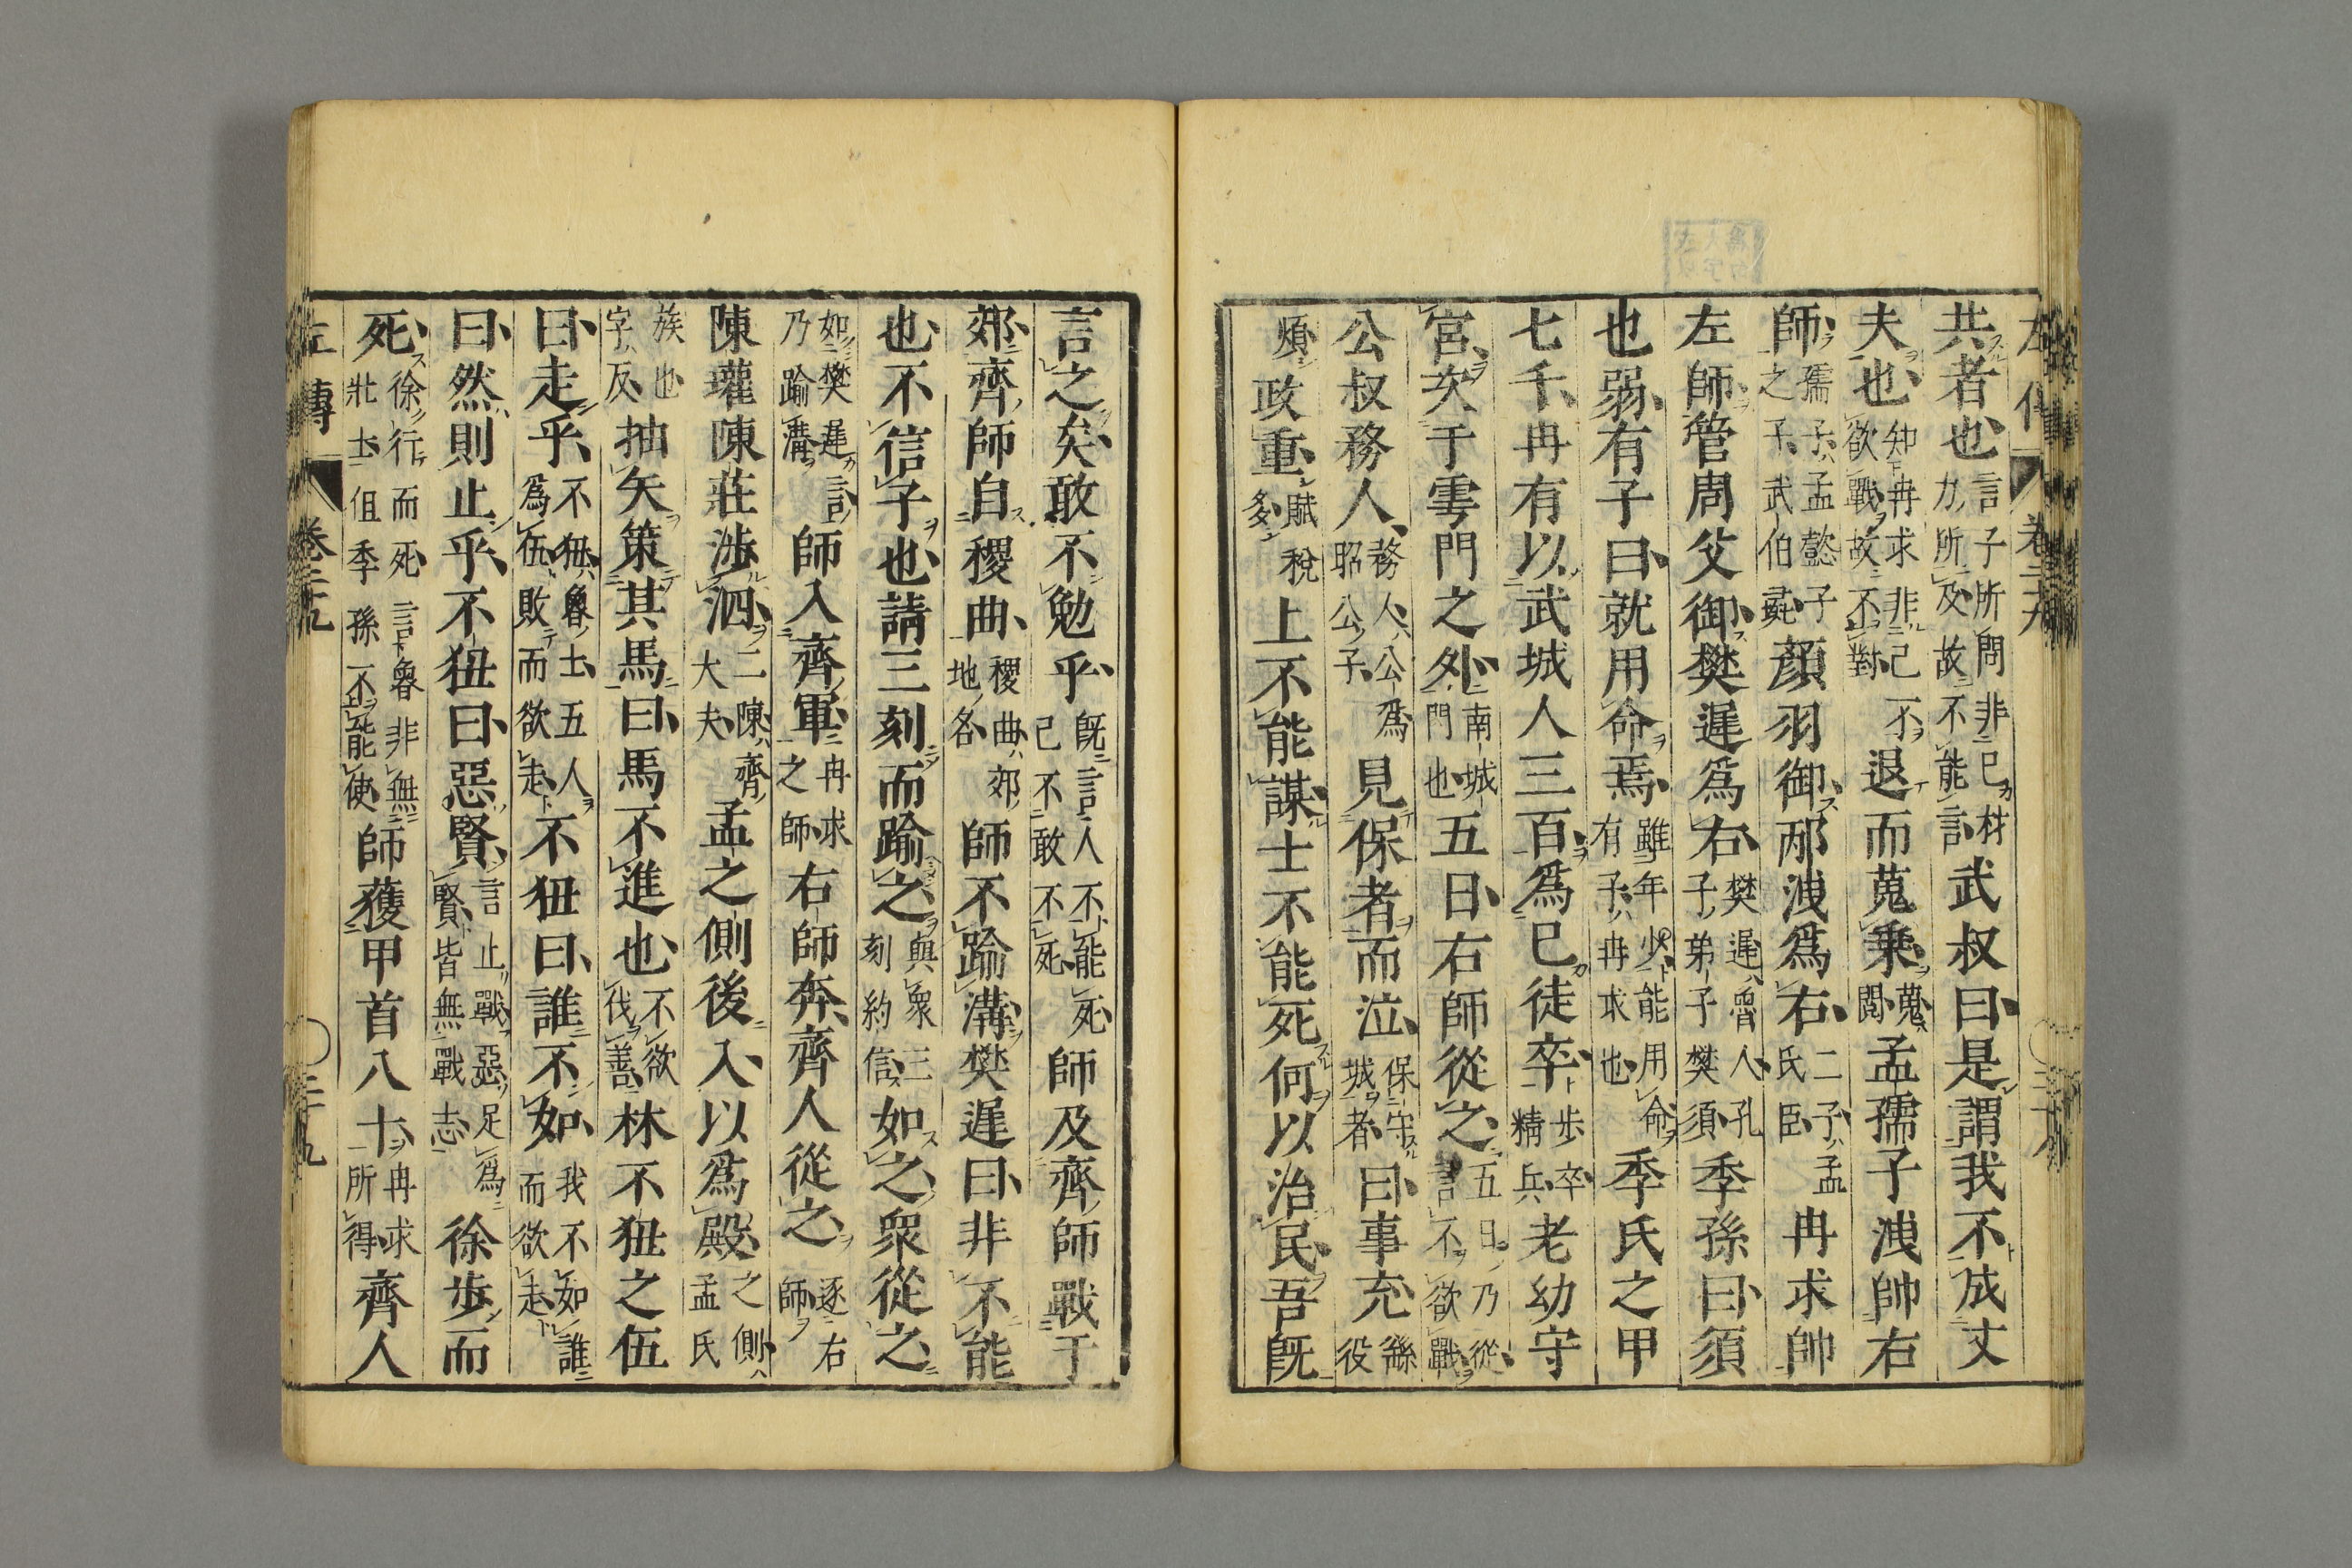 共者也言子所問非己材力所及故不能言武叔曰是謂我不成丈
夫也知冉求非己不欲戰故不對退而蒐乗蒐閲孟孺子洩帥右
師孺子孟懿子之子武伯彘顔羽御邴洩爲右二子孟氏臣冉求帥
左師管周父御樊遲爲右樊遲魯人孔子弟子樊須季孫曰須
也弱有子曰就用命焉雖年少能用命有子冉求也季氏之甲
七千冉有以武城人三百爲己徒卒歩卒精兵老幼守
宮次于雩門之外南城門也五日右師從之五日乃從言不欲戰
公叔務人務人公爲昭公子見保者而泣保守城者曰事充繇役
煩政重賦稅多上不能謀士不能死何以治民吾既
言之矣敢不勉乎既言人不能死己不敢不死師及齊師戰于
郊齊師自稷曲稷曲郊地名師不踰溝樊遲曰非不能
也不信子也請三刻而踰之與衆三刻約信如之衆從之
如樊遲言乃踰溝師入齊軍冉求之師右師奔齊人從之逐右師
陳瓘陳莊涉泗二陳齊大夫孟之側後入以爲殿之側孟氏
族也字反抽矢策其馬曰馬不進也不欲伐善林不狃之伍
曰走乎不狃魯士五人爲伍敗而欲走不狃曰誰不如我不如誰而欲走
曰然則止乎不狃曰惡賢言止戰惡足爲賢皆無戰志徐歩而
死徐行而死言魯非無壯士但季孫不能使師獲甲首八十冉求所得齊人
左傳 卷二十九 二十九